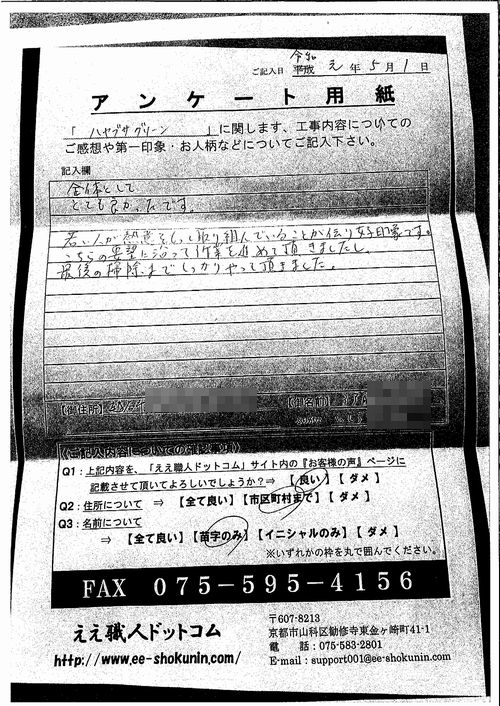 令和
ご記入日 平成 元 年 5 月 1 日
アンケート用紙
「 ハヤブサグリーン 」に関します、工事内容についての
ご感想や第一印象・お人柄などについてご記入下さい。
記入欄
全体として
とても良かったです。
若い人が熱意をもって取り組んでいることが伝り好印象です。
こちらの要望に沿って作業を進めて頂きましたし、
最後の掃除までしっかりやって頂きました。
【御住所】 【御名前】
《ご記入内容についての
Q1：上記内容を、「ええ職人ドットコム」サイト内の『お客様の声』ページに
記載させて頂いてよろしいでしょうか？⇒ 【 良い 】 【 ダメ 】
Q2：住所について ⇒ 【全て良い】【市区町村まで】【 ダメ 】
Q3：名前について
⇒ 【全て良い】【苗字のみ】【イニシャルのみ】【 ダメ 】
※いずれかの枠を丸で囲んでください。
FAX 075-595-4156
ええ職人ドットコム
http://www.ee-shokunin.com/
〒607-8213
京都市山科区勧修寺東金ヶ崎町41-1
電 話：075-583-2801
E-mail：support001@ee-shokunin.com